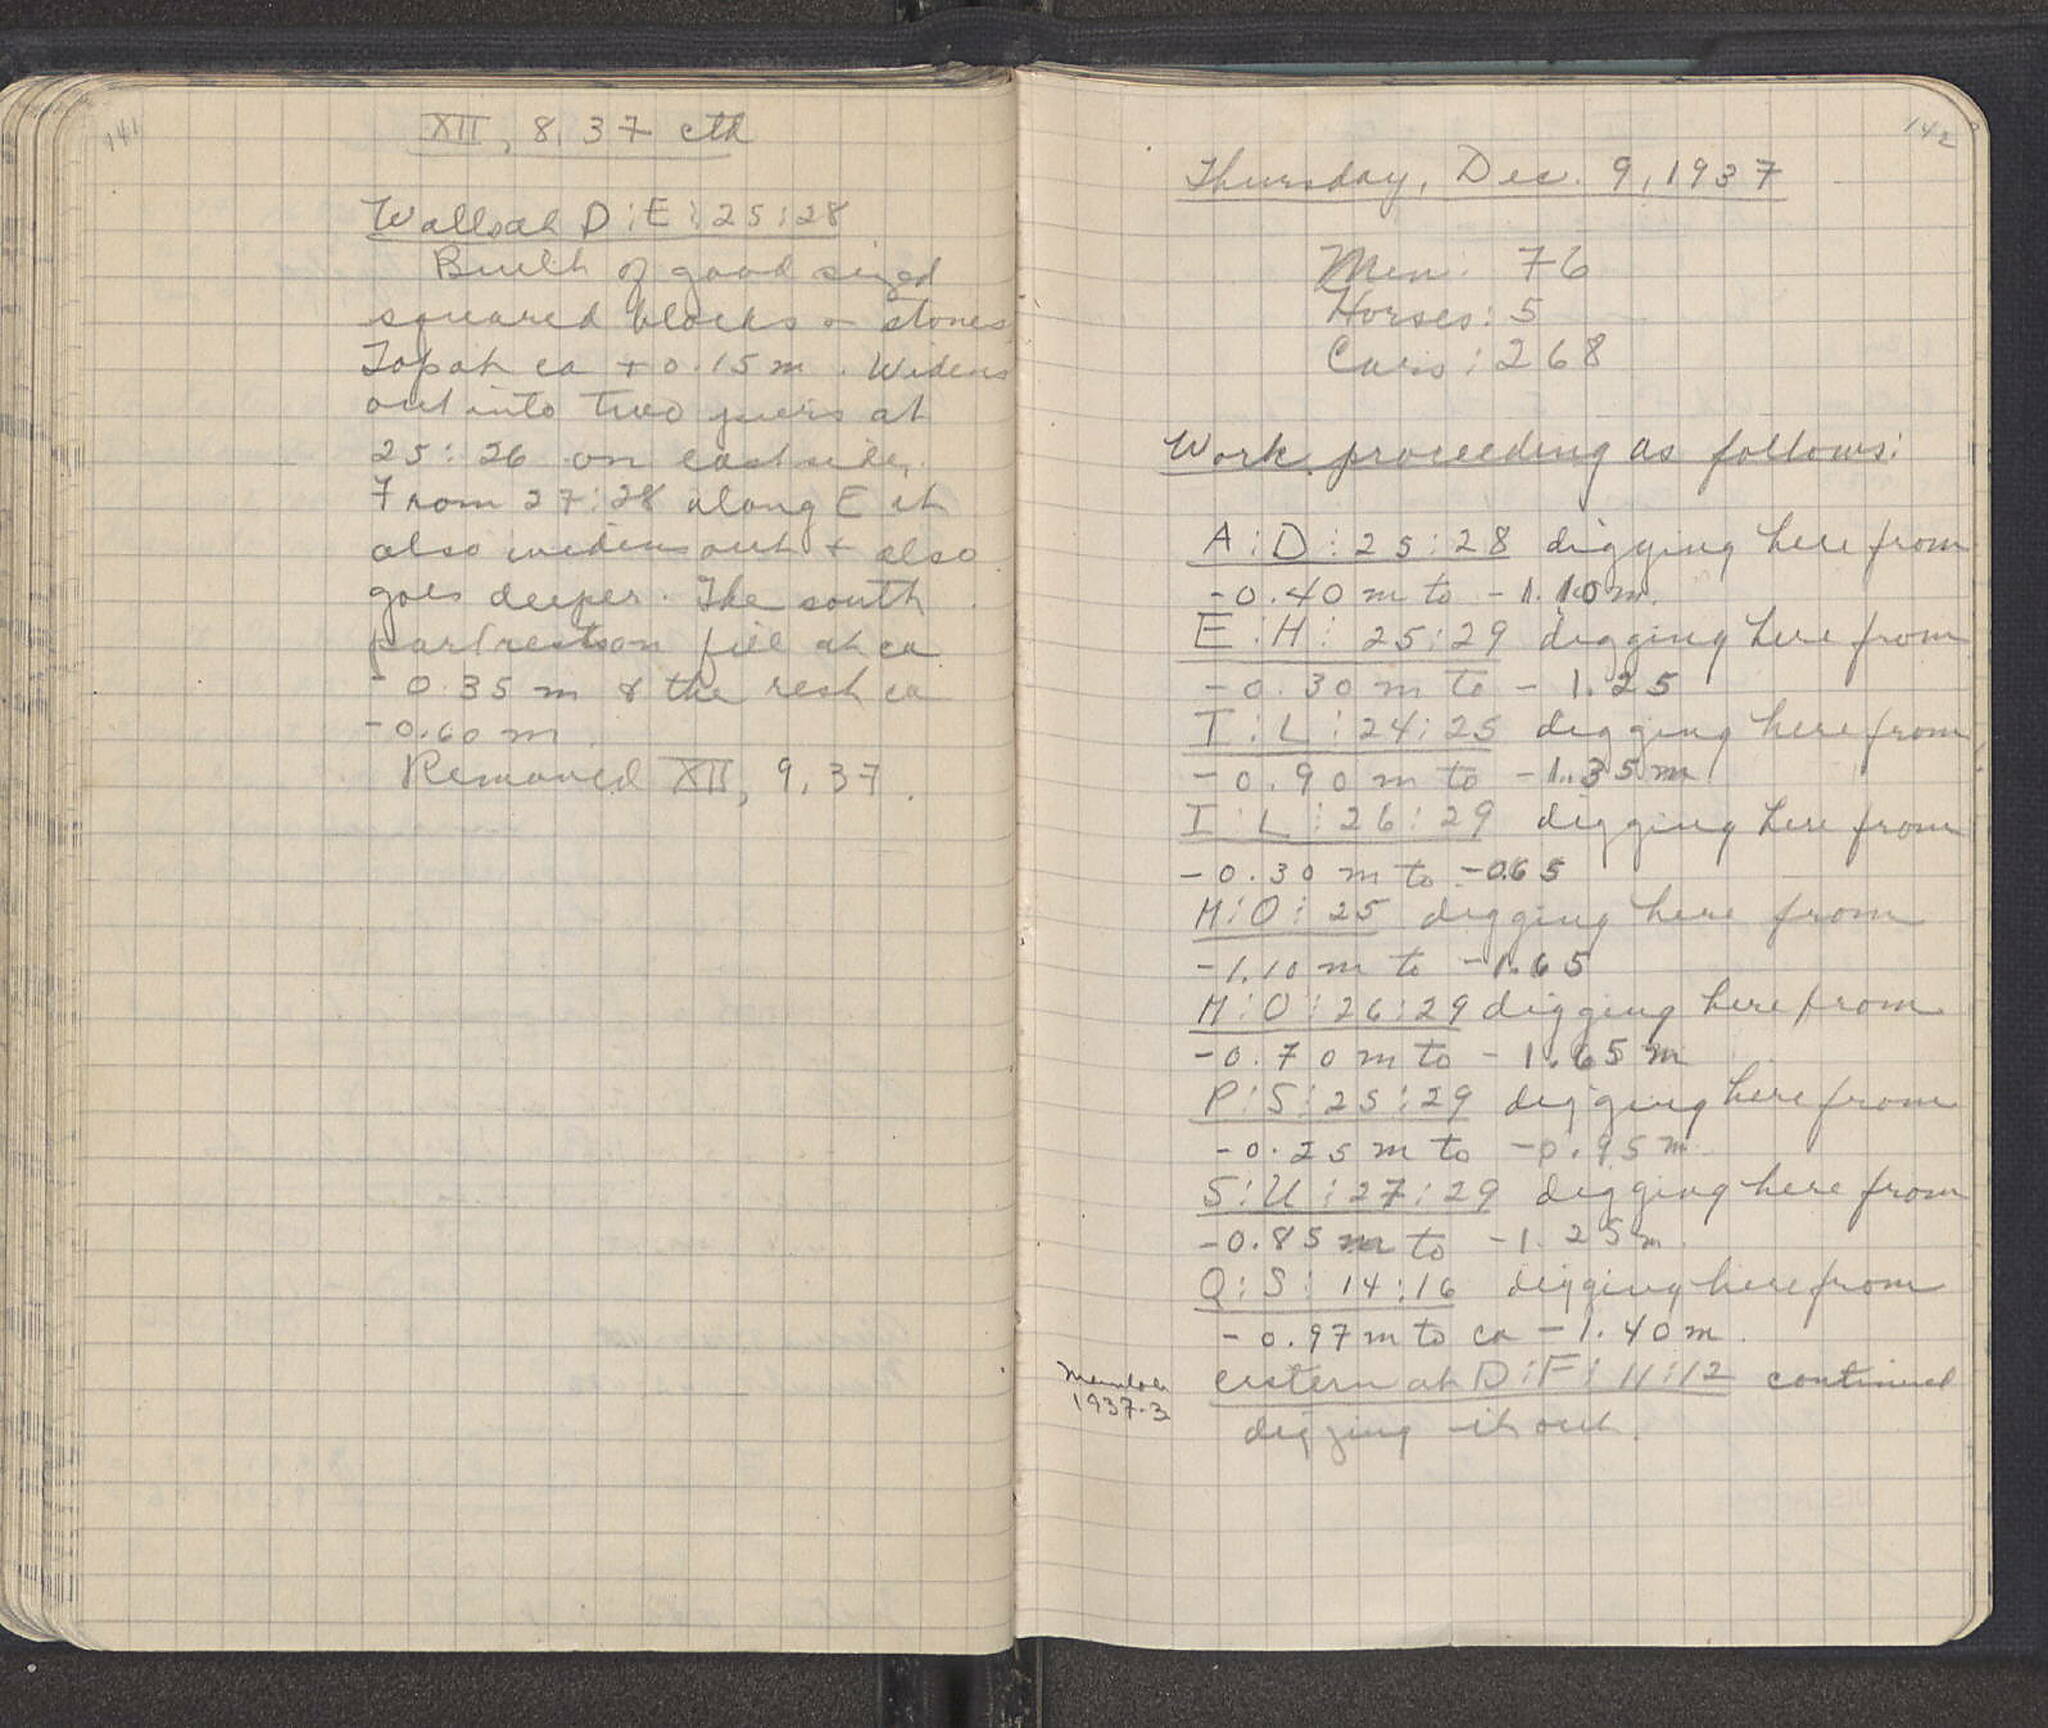 141
XII, 8, 37 ctd
Wall at D:E:25:28
Built of good sized
squared blocks & stones
Top at ca +0.15 m. Widens
out into two piers at
25:26 on east side.
From 27:28 along E it
also widens out & also
goes deeper. The south
part rests on fill at ca
-0.35 m & the rest ca
-0.60 m.
Removed XII, 9, 37.
142
Thursday, Dec. 9, 1937
Men: 76
Horses: 5
Cars: 268
Work proceeding as follows:
A:D:25:28 digging here from
-0.40 m to -1.10 m.
E:H:25:29 digging here from
-0.30 m to -1.25
I:L:24:25 digging here from
-0.90 m to -1.35 m
I:L:26:29 digging here from
-0.30 m to -0.65
M:O:25 digging here from
-1.10 m to -1.65
M:O:26:29 digging here from
-0.70 m to -1.65 m
P:S:25:29 digging here from
-0.25 m to -0.95 m
S:U:27:29 digging here from
-0.85 m to -1.25 m.
Q:S:14:16 digging here from
-0.97 m to ca -1.40 m.
cistern at D:F:11:12 continued
digging it out.
1937-3